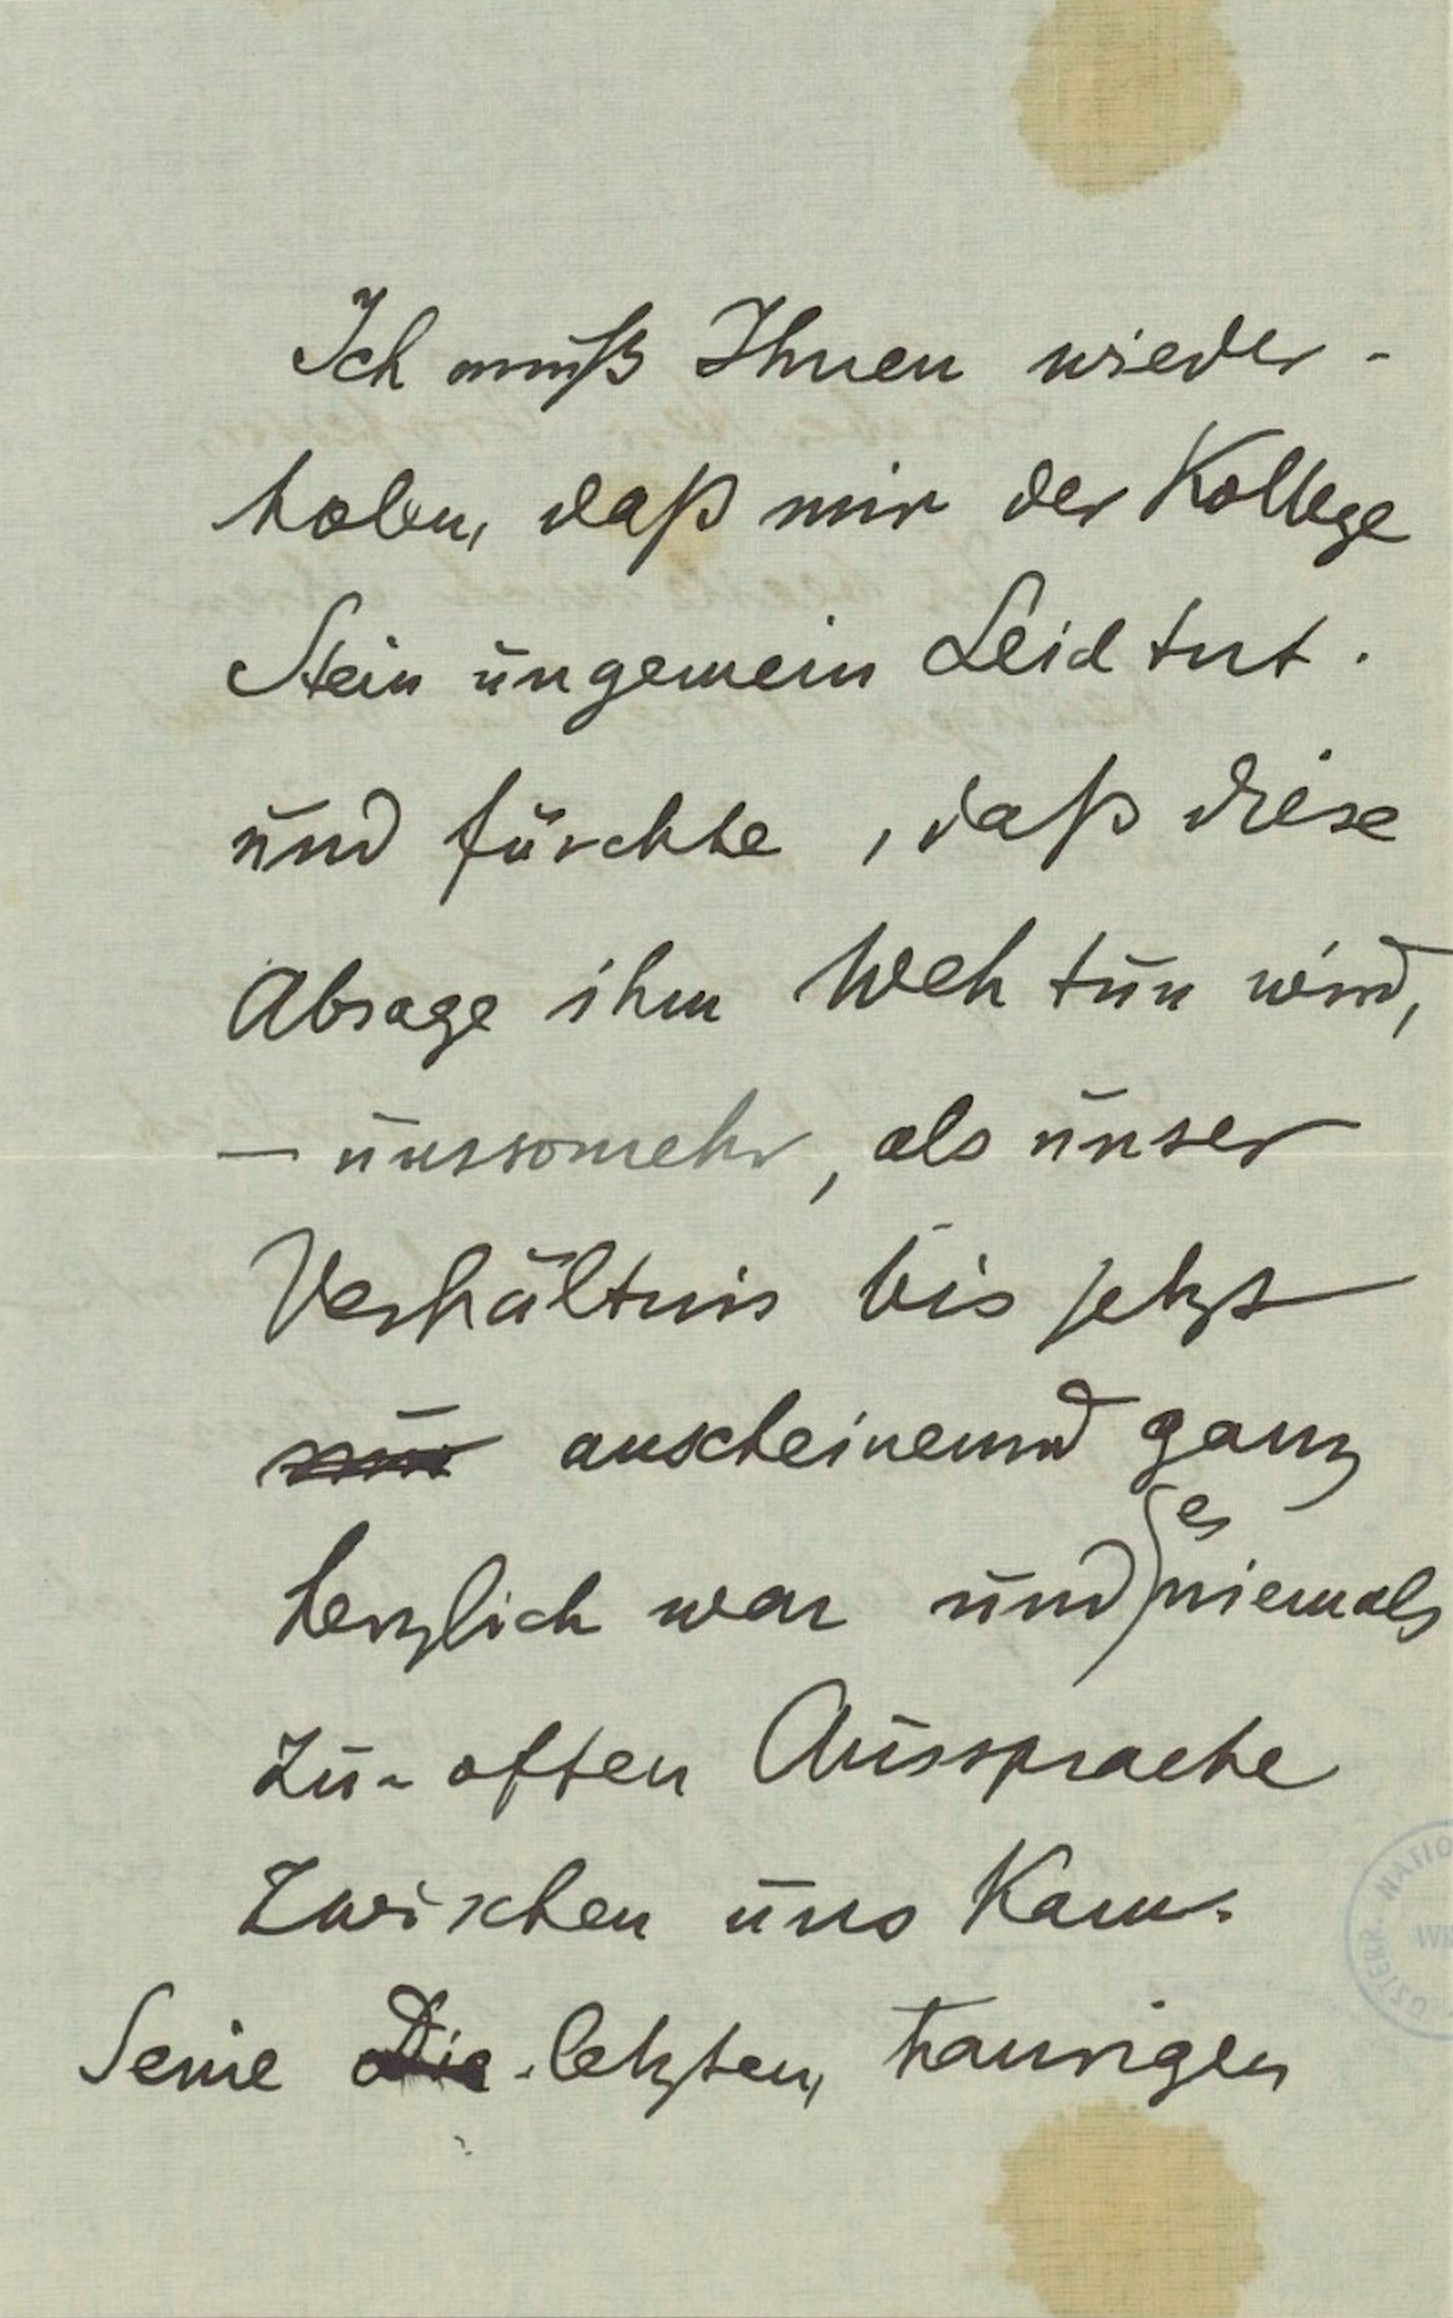 Ich muß Ihnen wieder-
holen, daß mir der Kollege
Stein ungemein Leid tut.
und fürchte, daß diese
Absage ihm Weh tun wird,
— umsomehr, als unser
Verhältnis bis jetzt
nur anscheinend ganz
herzlich war und es niemals
zu offen Aussprache
zwischen uns kam.
Seine Die letzten, traurigen